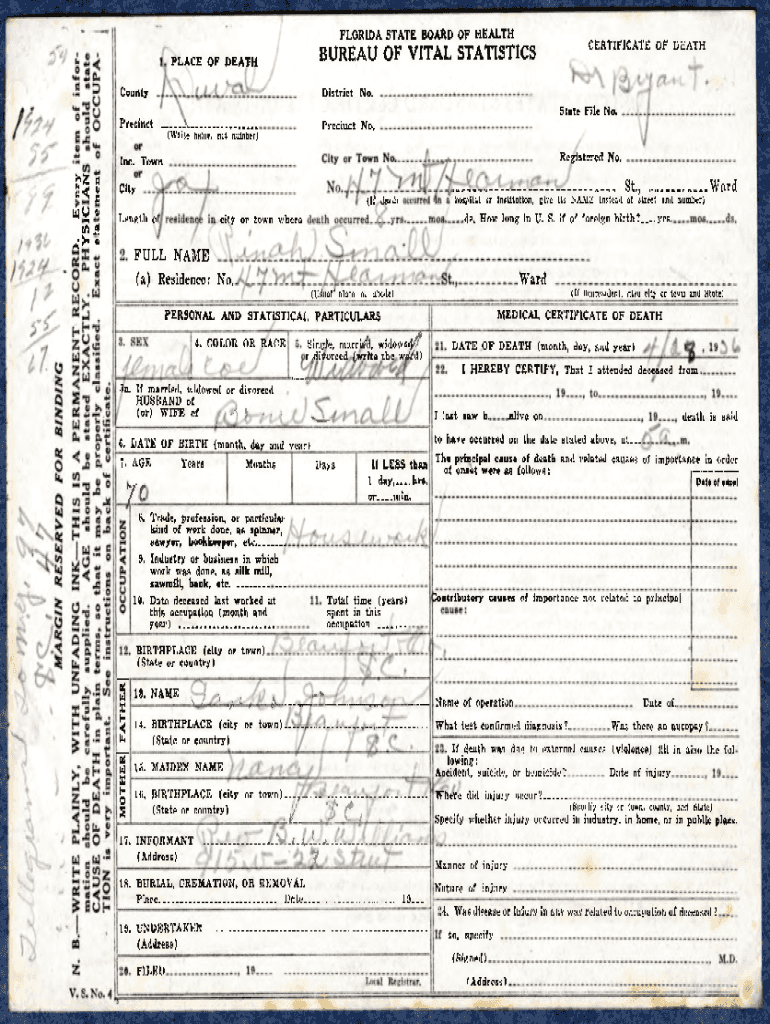 FLORIDA STATE BOARD OF HEALTH
BUREAU OF VITAL STATISTICS
CERTIFICATE OF DEATH
Dr Bryant.
1. PLACE OF DEATH
County Duval
District No.
State File No.
Precinct
(Write name, not number)
Precinct No.
or
Inc. Town
City or Town No.
Registered No.
or
City Jax
No. 47 Mt Hearman St., Ward
(If death occurred in a hospital or institution, give its NAME instead of street and number)
Length of residence in city or town where death occurred yrs. mos. ds. How long in U. S. if of foreign birth? yrs. mos. ds.
2. FULL NAME Rinah Small
(a) Residence: No. 47 Mt Hearman St., Ward
(Usual place of abode) (If nonresident, give city or town and State)
PERSONAL AND STATISTICAL PARTICULARS
3. SEX
4. COLOR OR RACE
5. Single, married, widowed
or divorced (write the word)
female Col
5a. If married, widowed or divorced
HUSBAND of
(or) WIFE of
Small
6. DATE OF BIRTH (month, day and year)
7. AGE Years Months Days If LESS than
1 day, hrs.
or min.
70
OCCUPATION
8. Trade, profession, or particular
kind of work done, as spinner,
sawyer, bookkeeper, etc. Housework
9. Industry or business in which
work was done, as silk mill,
sawmill, bank, etc.
10. Date deceased last worked at
this occupation (month and
year)
11. Total time (years)
spent in this
occupation
12. BIRTHPLACE (city or town)
(State or country) S.C.
FATHER
13. NAME Johnson
14. BIRTHPLACE (city or town)
(State or country) S.C.
MOTHER
15. MAIDEN NAME Nancy
16. BIRTHPLACE (city or town)
(State or country) S.C.
17. INFORMANT Rev B. W. Williams
(Address) 915 W-22 Street
18. BURIAL, CREMATION, OR REMOVAL
Place Date 19
19. UNDERTAKER
(Address)
20. FILED 19
Local Registrar.
V. S. No. 4
MEDICAL CERTIFICATE OF DEATH
21. DATE OF DEATH (month, day, and year) 4/28, 1936
22. I HEREBY CERTIFY, That I attended deceased from
, 19 , to , 19
I last saw h alive on , 19 , death is said
to have occurred on the date stated above, at 5 a m.
The principal cause of death and related causes of importance in order
of onset were as follows:
Date of onset
Contributory causes of importance not related to principal
cause:
Name of operation Date of
What test confirmed diagnosis? Was there an autopsy?
23. If death was due to external causes (violence) fill in also the fol-
lowing:
Accident, suicide, or homicide? Date of injury , 19
Where did injury occur?
(Specify city or town, county, and State)
Specify whether injury occurred in industry, in home, or in public place.
Manner of injury
Nature of injury
24. Was disease or injury in any way related to occupation of deceased?
If so, specify
(Signed) M.D.
(Address)
MARGIN RESERVED FOR BINDING
N. B.—WRITE PLAINLY, WITH UNFADING INK—THIS IS A PERMANENT RECORD. Every item of infor-
mation should be carefully supplied. AGE should be stated EXACTLY. PHYSICIANS should state
CAUSE OF DEATH in plain terms, so that it may be properly classified. Exact statement of OCCUPA-
TION is very important. See instructions on back of certificate.
54
1924
55
99
1936
1924
12
55
67